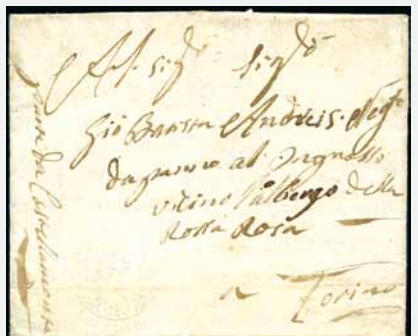 All sig.r sig.r
Gio Batista Andreis. Neg.te
da panno al Ingrosso
vicino l'albergo della
Rossa Rosa
a Torino
da Castellamonte